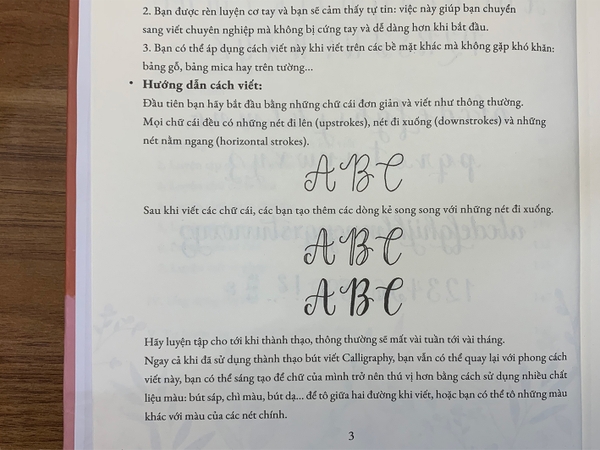 2. Bạn được rèn luyện cơ tay và bạn sẽ cảm thấy tự tin: việc này giúp bạn chuyển
sang viết chuyên nghiệp mà không bị cứng tay và dễ dàng hơn khi bắt đầu.
3. Bạn có thể áp dụng cách viết này khi viết trên các bề mặt khác mà không gặp khó khăn:
bảng gỗ, bảng mica hay trên tường...
• Hướng dẫn cách viết:
Đầu tiên bạn hãy bắt đầu bằng những chữ cái đơn giản và viết như thông thường.
Mọi chữ cái đều có những nét đi lên (upstrokes), nét đi xuống (downstrokes) và những
nét nằm ngang (horizontal strokes).
A B C
Sau khi viết các chữ cái, các bạn tạo thêm các dòng kẻ song song với những nét đi xuống.
A B C
A B C
Hãy luyện tập cho tới khi thành thạo, thông thường sẽ mất vài tuần tới vài tháng.
Ngay cả khi đã sử dụng thành thạo bút viết Calligraphy, bạn vẫn có thể quay lại với phong cách
viết này, bạn có thể sáng tạo để chữ của mình trở nên thú vị hơn bằng cách sử dụng nhiều chất
liệu màu: bút sáp, chì màu, bút dạ... để tô giữa hai đường khi viết, hoặc bạn có thể tô những màu
khác với màu của các nét chính.
3